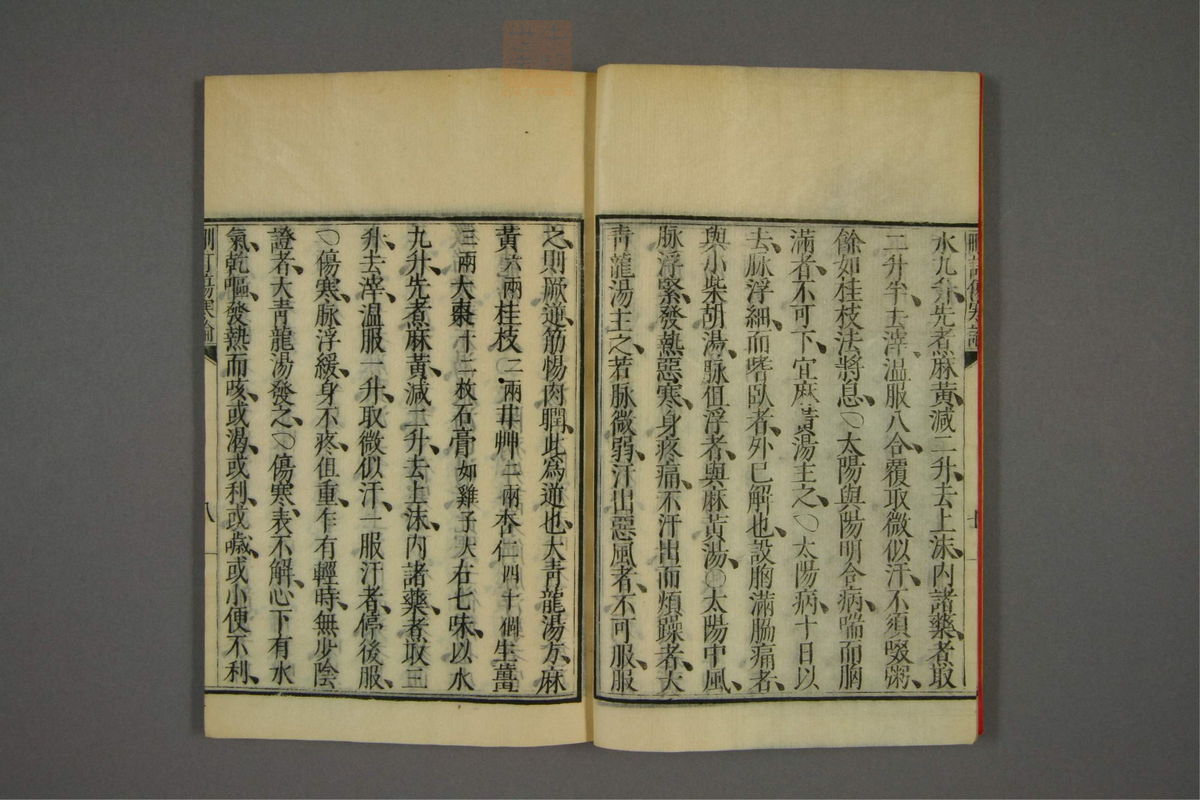 刪訂傷寒論
七
水九升、先煮麻黃、減二升、去上沫、內諸藥、煮取
二升半、去滓、溫服八合、覆取微似汗、不須啜粥、
餘如桂枝法將息、〇太陽與陽明合病、喘而胸
滿者、不可下、宜麻黃湯主之、〇太陽病、十日以
去、脉浮細而嗜臥者、外已解也、設胸滿脇痛者、
與小柴胡湯、脉但浮者、與麻黃湯、〇太陽中風、
脉浮緊、發熱惡寒、身疼痛、不汗出而煩躁者、大
靑龍湯主之、若脉微弱、汗出惡風者、不可服、服
之則厥逆、筋惕肉瞤、此爲逆也、大靑龍湯方、麻
黃六兩桂枝二兩甘艸二兩杏仁四十個生薑
三兩大棗十二枚石膏如雞子大右七味、以水
九升、先煮麻黃、減二升、去上沫、內諸藥、煮取三
升、去滓、溫服一升、取微似汗、一服汗者、停後服、
〇傷寒、脉浮緩、身不疼、但重、乍有輕時、無少陰
證者、大靑龍湯發之、〇傷寒、表不解、心下有水
氣、乾嘔、發熱而咳、或渴、或利、或噎、或小便不利、
刪訂傷寒論
八